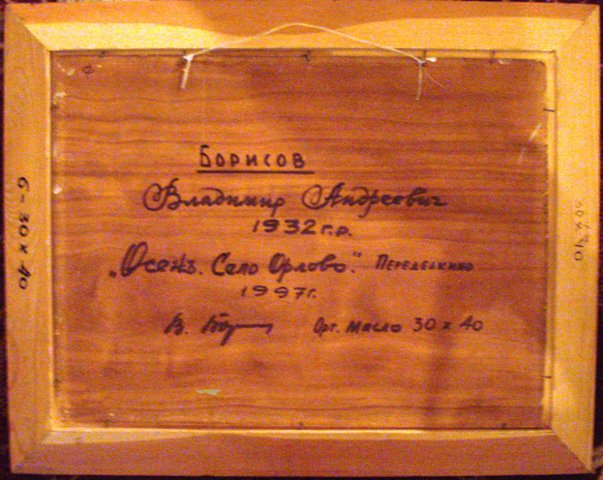 Борисов
Владимир Андреевич
1932 г.р.
„Осень. Село Орлово." Переделкино
1997г.
В. Орг. масло 30 х 40
6-30 х 40